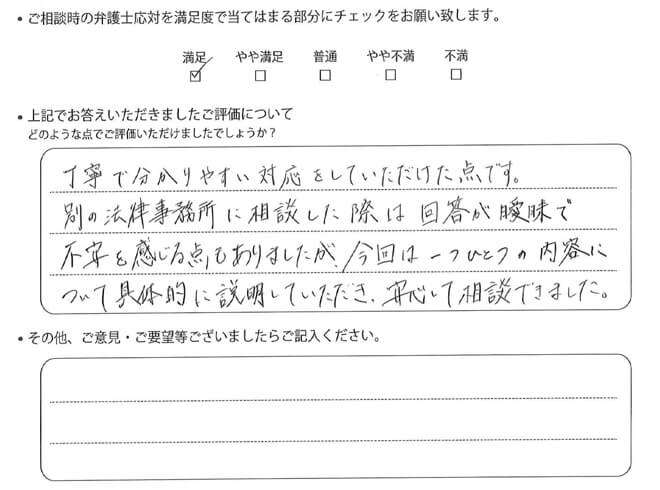 ・ご相談時の弁護士応対を満足度で当てはまる部分にチェックをお願い致します。
満足 やや満足 普通 やや不満 不満
☑ □ □ □ □
・上記でお答えいただきましたご評価について
どのような点でご評価いただけましたでしょうか？
丁寧で分かりやすい対応をしていただけた点です。
別の法律事務所に相談した際は回答が曖昧で
不安を感じる点もありましたが、今回は一つひとつの内容に
ついて具体的に説明していただき、安心して相談できました。
・その他、ご意見・ご要望等ございましたらご記入ください。